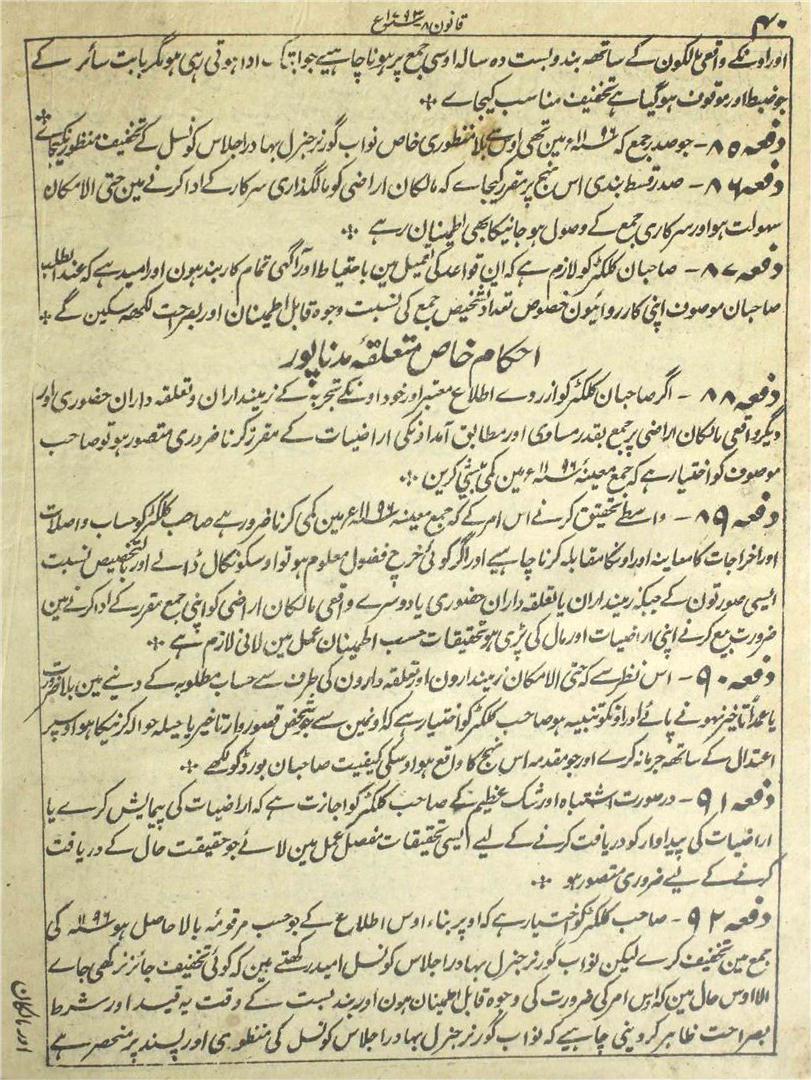 قانون ۸ ۱۷۹۳ سنہ ع
۴۰
اور اونکے واقعی مالکون کے ساتھہ بندوبست دہ سالہ اوسی جمع پر ہونا چاہیے جو ابتک ادا ہوتی رہی ہو مگر بابت سائر کے
جو ضبط اور موقوف ہوگیا ہے تخفیف مناسب کیجاے ❖
دفعہ ۸۵ - جو صدر جمع کہ سنہ ۱۱۹۶ ع مین تھی اوس سے بلا منظوری خاص نواب گورنر جنرل بہادر اجلاس کونسل کے تخفیف منظور نکیجاے ❖
دفعہ ۸۶ - صدر قسط بندی اس نہج پر مقرر کیجاے کہ مالکان اراضی کو مالگذاری سرکار کے ادا کرنے مین حتی الامکان
سہولت ہو اور سرکاری جمع کے وصول ہوجانیکا بھی اطمینان رہے ❖
دفعہ ۸۷ - صاحبان کلکٹر کو لازم ہے کہ ان قواعد کی تعمیل مین باحتیاط اور آگہی تمام کاربند ہون اور امید ہے کہ عند الطلب
صاحبان موصوف اپنی کارروائیون خصوص تعداد تشخیص جمع کی نسبت وجوہ قابل اطمینان اور بصراحت لکھہ سکین گے ❖
احکام خاص متعلقہ مدناپور
دفعہ ۸۸ - اگر صاحبان کلکٹر کو ازروے اطلاع معتبر اور خود اونکے تجربہ کے زمینداران و تعلقہ داران حضوری اور
دیگر واقعی مالکان اراضی پر جمع بقدر مساوی اور مطابق آمدنی اراضیات کے مقرر کرنا ضروری متصور ہو تو صاحب
موصوف کو اختیار ہے کہ جمع معینہ سنہ ۱۱۹۶ ع مین کمی بیشی کرین ❖
دفعہ ۸۹ - واسطے تحقیق کرنے اس امر کے کہ جمع معینہ سنہ ۱۱۹۶ ع مین کمی کرنا ضرور ہے صاحب کلکٹر کو حساب واصلات
اور اخراجات کا معاینہ اور اونکا مقابلہ کرنا چاہیے اور اگر کوئی خرچ فضول معلوم ہو تو اوسکو نکال ڈالے اور بالتخصیص نسبت
ایسی صورتون کے جبکہ زمینداران یا تعلقہ داران حضوری یا دوسرے واقعی مالکان اراضی کو اپنی جمع مقررہ کے ادا کرنے مین
ضرورت بیع کرنے اپنی اراضیات اور مال کی پڑی ہو تحقیقات حسب اطمینان عمل مین لانی لازم ہے ❖
دفعہ ۹۰ - اس نظر سے کہ حتی الامکان زمیندارون اور تعلقہ دارون کی طرف سے حساب مطلوبہ کے دینے مین بلا ضرورت
یا عمداً تاخیر نہونے پائے اور اونکو تنبیہ ہو صاحب کلکٹر کو اختیار ہے کہ اونمین سے جو شخص قصوروار تاخیر یا حیلہ حوالہ کرنیکا ہو اوسپر
اعتدال کے ساتھہ جرمانہ کرے اور جو مقدمہ اس نہج کا واقع ہو اوسکی کیفیت صاحبان بورڈ کو لکھے ❖
دفعہ ۹۱ - درصورت اشتباہ اور شک عظیم کے صاحب کلکٹر کو اجازت ہے کہ اراضیات کی پیمایش کرے یا
اراضیات کی پیداوار کو دریافت کرنے کے لیے ایسی تحقیقات مفصل عمل مین لائے جو حقیقت حال کے دریافت
کرنے کے لیے ضروری متصور ہو ❖
دفعہ ۹۲ - صاحب کلکٹر کو اختیار ہے کہ اوپر بناء اوس اطلاع کے جو حسب مرقومہ بالا حاصل ہو سنہ ۱۱۹۶ کی
جمع مین تخفیف کرے لیکن نواب گورنر جنرل بہادر اجلاس کونسل امید رکھتے ہین کہ کوئی تخفیف جائز نرکھی جاے
الا اوس حال مین کہ اس امر کی ضرورت کی وجوہ قابل اطمینان ہون اور بندوبست کے وقت یہ قید اور شرط
بصراحت ظاہر کردینی چاہیے کہ نواب گورنر جنرل بہادر اجلاس کونسل کی منظوری اور پسند پر منحصر ہے
اور مالکان